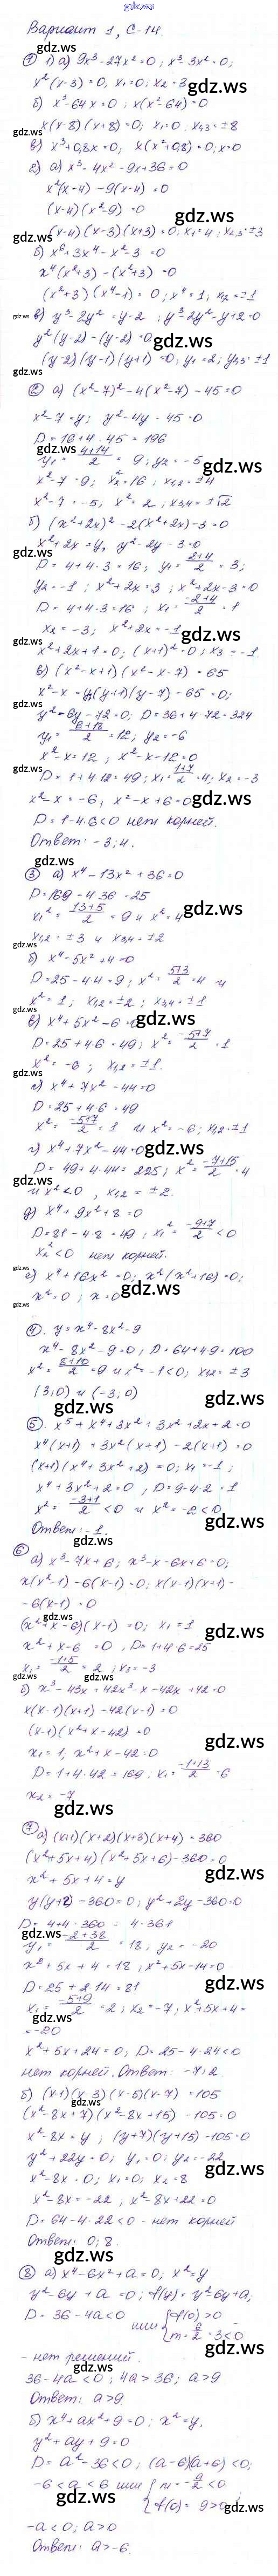 gdz.ws
Вариант 1, С-14.
① 1) а) 9x³-27x²=0; x³-3x²=0;
x²(x-3)=0; x₁=0; x₂=3
gdz.ws
б) x³-64x=0; x(x²-64)=0
x(x-8)(x+8)=0; x₁=0; x₂,₃=±8
в) x³+0,8x=0; x(x²+0,8)=0; x=0
2) а) x³-4x²-9x+36=0
x²(x-4)-9(x-4)=0
(x-4)(x²-9)=0
(x-4)(x-3)(x+3)=0; x₁=4; x₂,₃=±3
б) x⁶+3x⁴-x²-3=0
x⁴(x²+3)-(x²+3)=0
(x²+3)(x⁴-1)=0; x⁴=1; x₁,₂=±1
в) y³-2y²=y-2; y³-2y²-y+2=0
y²(y-2)-(y-2)=0
(y-2)(y-1)(y+1)=0; y₁=2; y₂,₃=±1
② а) (x²-7)²-4(x²-7)-45=0
x²-7=y; y²-4y-45=0
D=16+4·45=196
y₁=(4+14)/2=9; y₂=-5
x²-7=9; x²=16; x₁,₂=±4
x²-7=-5; x²=2; x₃,₄=±√2
б) (x²+2x)²-2(x²+2x)-3=0
x²+2x=y; y²-2y-3=0
D=4+4·3=16; y₁=(2+4)/2=3;
y₂=-1; x²+2x=3; x²+2x-3=0
D=4+4·3=16; x₁=(-2+4)/2=1
x₂=-3; x²+2x=-1
x²+2x+1=0; (x+1)²=0; x₃=-1
в) (x²-x+1)(x²-x-7)=65
x²-x=y; (y+1)(y-7)-65=0;
y²-6y-72=0; D=36+4·72=324
y₁=(6+18)/2=12; y₂=-6
x²-x=12; x²-x-12=0
D=1+4·12=49; x₁=(1+7)/2=4; x₂=-3
x²-x=-6; x²-x+6=0
D=1-4·6<0 нет корней.
Ответ: -3; 4.
③ а) x⁴-13x²+36=0
D=169-4·36=25
x₁²=(13+5)/2=9 и x²=4
x₁,₂=±3 и x₃,₄=±2
б) x⁴-5x²+4=0
D=25-4·4=9; x²=(5+3)/2=4 и
x²=1; x₁,₂=±2; x₃,₄=±1
в) x⁴+5x²-6=0
D=25+4·6=49; x²=(-5+7)/2=1
x²=-6; x₁,₂=±1.
г) x⁴+7x²-44=0
D=25+4·6=49
x²=(-5+7)/2=1 и x²=-6; x₁,₂=±1
г) x⁴+7x²-44=0
D=49+4·44=225; x²=(-7+15)/2=4
и x²<0, x₁,₂=±2.
д) x⁴+9x²+8=0
D=81-4·8=49; x₁²=(-9+7)/2<0
x₂²<0 нет корней.
е) x⁴+16x²=0; x²(x²+16)=0;
x²=0; x=0
④. y=x⁴-8x²-9
x⁴-8x²-9=0; D=64+4·9=100
x²=(8+10)/2=9 и x²=-1<0; x₁,₂=±3
(3;0) и (-3;0)
⑤. x⁵+x⁴+3x²+3x²+2x+2=0
x⁴(x+1)+3x²(x+1)-2(x+1)=0
(x+1)(x⁴+3x²+2)=0; x₁=-1;
x⁴+3x²+2=0; D=9-4·2=1
x²=(-3+1)/2<0 и x²=-2<0.
Ответ: -1.
⑥
а) x³-7x+6; x³-x-6x+6=0;
x(x²-1)-6(x-1)=0; x(x-1)(x+1)-
-6(x-1)=0
(x²+x-6)(x-1)=0; x₁=1
x²+x-6=0; D=1+4·6=25
x₁=(-1+5)/2=2; x₃=-3
б) x³-43x+42x³-x-42x+42=0
x(x-1)(x+1)-42(x-1)=0
(x-1)(x²+x-42)=0
x₁=1; x²+x-42=0
D=1+4·42=169; x₁=(-1+13)/2=6
x₂=-7
⑦ а) (x+1)(x+2)(x+3)(x+4)=360
(x²+5x+4)(x²+5x+6)-360=0
x²+5x+4=y
y(y+2)-360=0; y²+2y-360=0
D=4+4·360=4·361
y₁=(-2+38)/2=18; y₂=-20
x²+5x+4=18; x²+5x-14=0
D=25+2·14=81
x₁=(-5+9)/2=2; x₂=-7; x²+5x+4=
=-20
x²+5x+24=0; D=25-4·24<0
нет корней. Ответ: -7; 2.
б) (x-1)(x-3)(x-5)(x-7)=105
(x²-8x+7)(x²-8x+15)-105=0
x²-8x=y; (y+7)(y+15)-105=0
y²+22y=0; y₁=0; y₂=-22
x²-8x=0; x₁=0; x₂=8
x²-8x=-22; x²-8x+22=0
D=64-4·22<0 - нет корней
Ответ: 0; 8.
⑧ а) x⁴-6x²+a=0; x²=y
y²-6y+a=0; f(y)=y²-6y+a;
D=36-4a<0 или {f(0)>0; m=6/2=3<0
- нет решений.
36-4a<0; 4a>36; a>9
Ответ: a>9.
б) x⁴+ax²+9=0; x²=y,
y²+ay+9=0
D=a²-36<0; (a-6)(a+6)<0;
-6<a<6 или {m=-a/2<0
{f(0)=9>0;
-a<0; a>0
Ответ: a>-6.